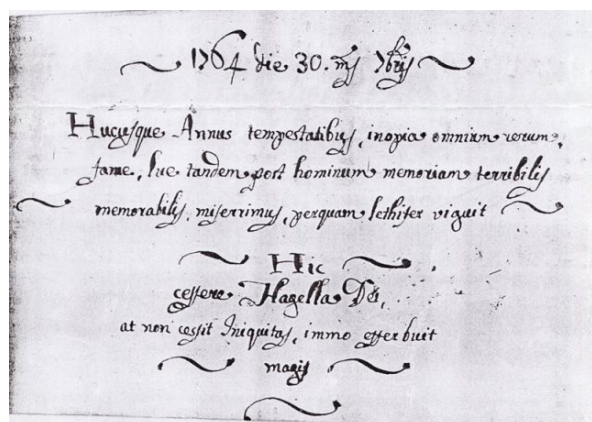 1764 die 30. msj 7brisj
Hucusque Annus tempestatibus, inopia omnium rerum,
fame, lue tandem post hominum memoriam terribilis
memorabilis, miserrimus, perquam lethifer viguit
Hic
cessere Flagella Dei,
at non cessit Iniquitas, immo efferbuit
magis